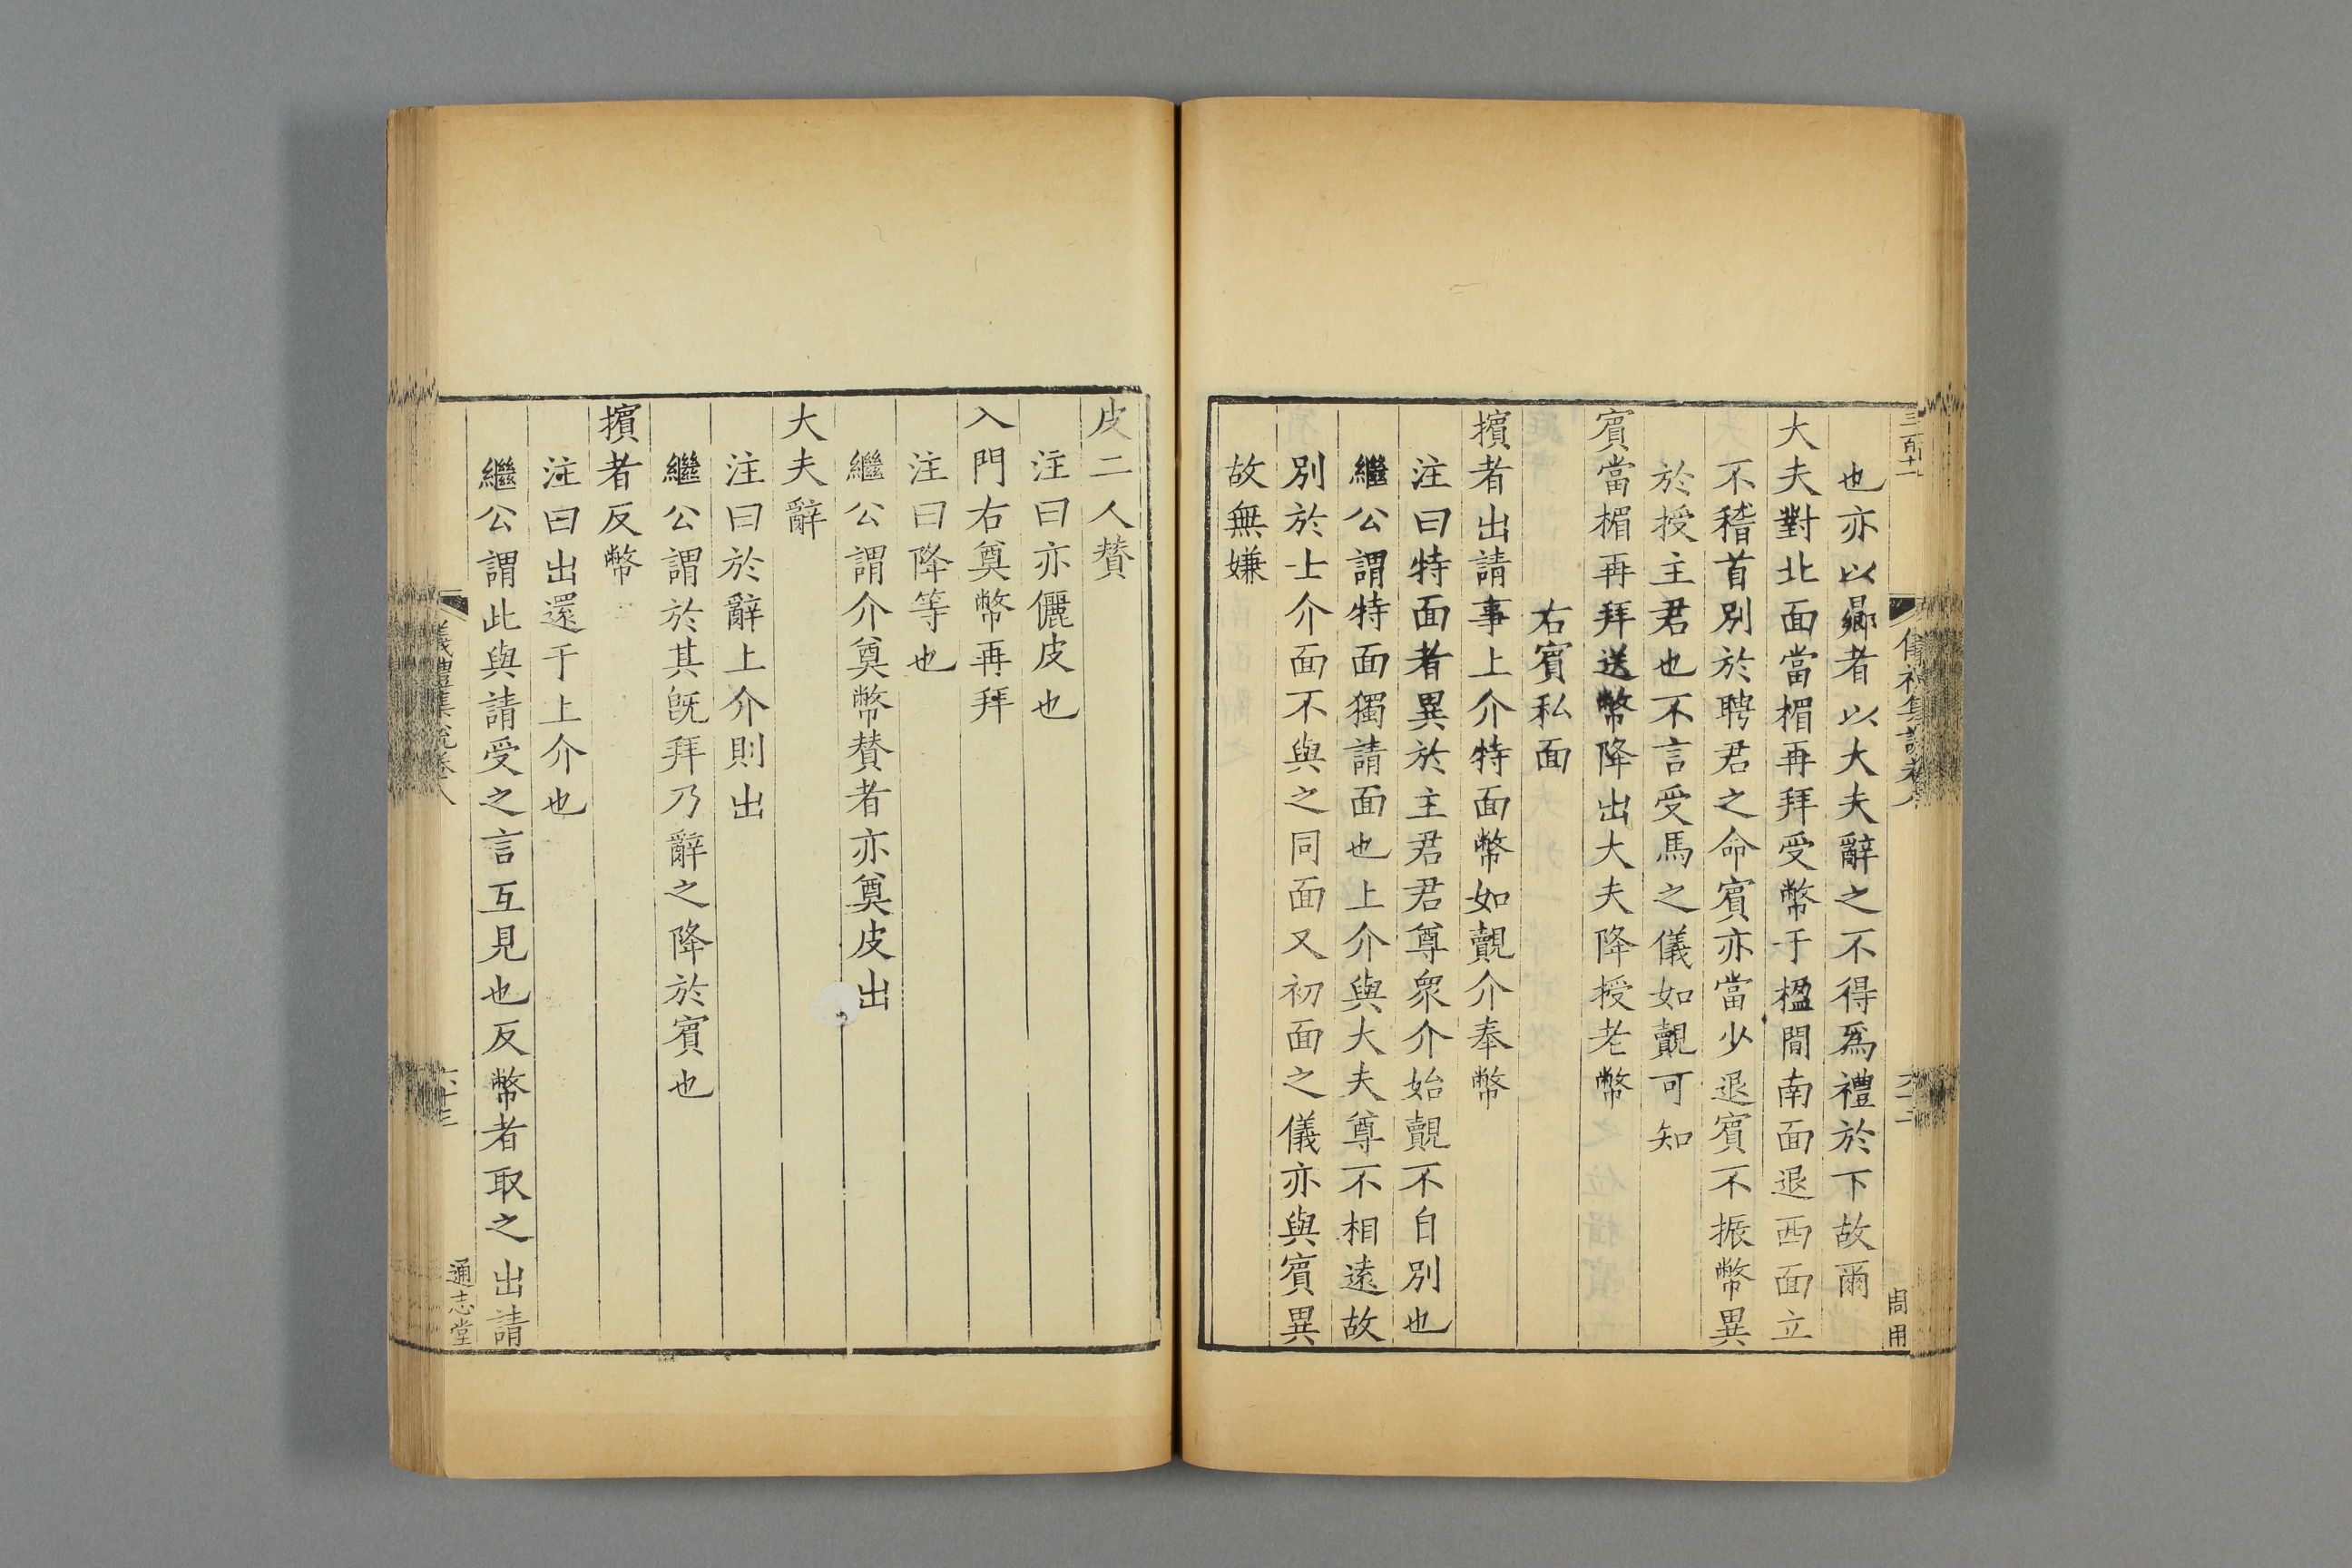 三百十
也亦以曏者以大夫辭之不得爲禮於下故爾
大夫對北面當楣再拜受幣于楹間南面退西面立
不稽首別於聘君之命賓亦當少退賓不振幣異
於授主君也不言受馬之儀如覿可知
賓當楣再拜送幣降出大夫降授老幣
右賓私面
擯者出請事上介特面幣如覿介奉幣
注曰特面者異於主君君尊眾介始覿不自別也
繼公謂特面獨請面也上介與大夫尊不相遠故
別於士介面不與之同面又初面之儀亦與賓異
故無嫌
周用
皮二人贊
注曰亦儷皮也
入門右奠幣再拜
注曰降等也
繼公謂介奠幣贊者亦奠皮出
大夫辭
注曰於辭上介則出
繼公謂於其旣拜乃辭之降於賓也
擯者反幣
注曰出還于上介也
繼公謂此與請受之言互見也反幣者取之出請
儀禮集說卷八
六十三
通志堂